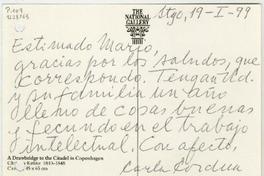 THE
NATIONAL
GALLERY
Stgo, 19-I-99
Estimado Mario,
gracias por los saludos, que
correspondo. Tengan Ud.
y su familia un año
lleno de cosas buenas
y fecundo en el trabajo
intelectual. Con afecto,
Carla Cordua
A Drawbridge to the Citadel in Copenhagen
Købke 1810-1848
45 x 65 cm